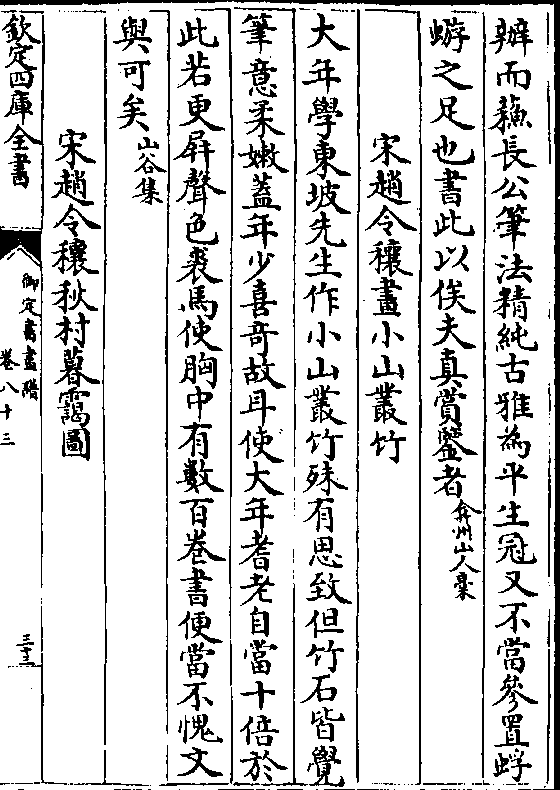 辨而蘓長公筆法精純古雅為平生冠又不當參置蜉
蝣之足也書此以俟夫真賞鑒者弇州山人稾
宋趙令穰畫小山叢竹
大年學東坡先生作小山叢竹殊有思致但竹石皆覺
筆意柔嫩蓋年少喜奇故耳使大年耆老自當十倍於
此若更屏聲色裘馬使胸中有數百卷書便當不愧文
與可矣山谷集
宋趙令穰秋村暮靄圖
欽定四庫全書
御定書畫譜
卷八十三
三十三